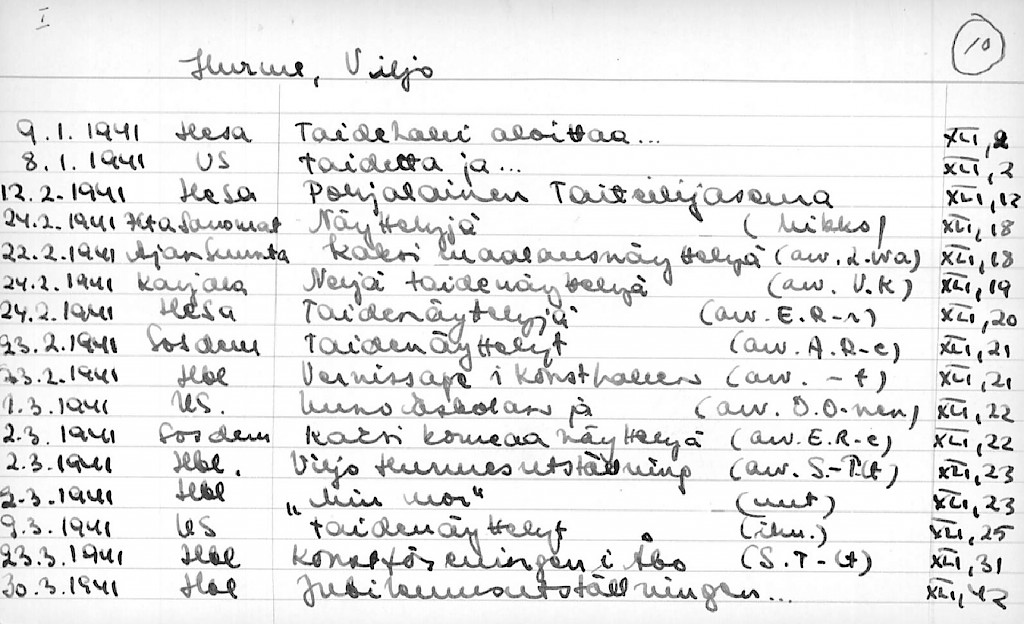 I
10
Hurme, Viljo
9.1.1941 HeSa Taidehalli aloittaa... XLI,2
8.1.1941 US Taidetta ja... XLI,2
12.2.1941 HeSa Pohjalainen Taiteilijasema XLI,12
24.2.1941 Ilta Sanomat Näyttelyjä (Mikko) XLI,18
22.2.1941 Ajan Suunta Kaksi maalausnäyttelyä (arv. L.Wa) XLI,18
24.2.1941 Karjala Neljä taidenäyttelyä (arv. V.K) XLI,19
24.2.1941 HeSa Taidenäyttelyjä (arv. E.R-r) XLI,20
23.2.1941 Sosdem Taidenäyttelyt (arv. A.R-e) XLI,21
23.2.1941 Hbl Vernissage i Konsthallen (arv. -t) XLI,21
1.3.1941 US. Uuno Eskolan ja (arv. O.O-nen) XLI,22
2.3.1941 Sosdem Kaksi komeaa näyttelyä (arv. E.R-e) XLI,22
2.3.1941 Hbl. Viljo Hurmes utställning (arv. S-T.Ut) XLI,23
2.3.1941 Hbl "Min mor" XLI,23
9.3.1941 US Taidenäyttelyt XLI,25
23.3.1941 Hbl Konstföreningen i Åbo (S.T-Ut) XLI,31
30.3.1941 Hbl Jubileumsutställningen... XLI,42